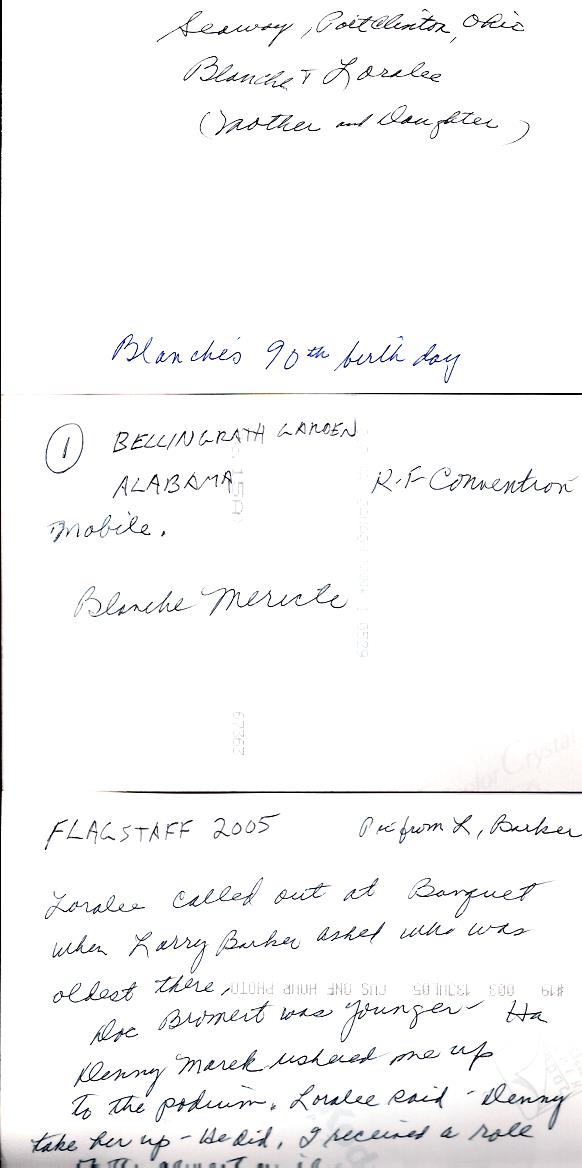 Seaway, Port Clinton, Ohio
Blanche & Loralee
(Mother and Daughter)
Blanche's 90th birthday
1 BELLINGRATH GARDEN
ALABAMA
R-F Convention
Mobile.
Blanche Mericle
15A
0529
67362
Color Crystal
FLAGSTAFF 2005
Pic from L, Barker
Loralee called out at Banquet
when Larry Barker asked who was
oldest there,
#19 003 13JUL05 CUS ONE HOUR PHOTO
Doc Bromert was younger - Ha
Denny Marek ushered me up
to the podium. Loralee said - Denny
take her up - He did, I received a role